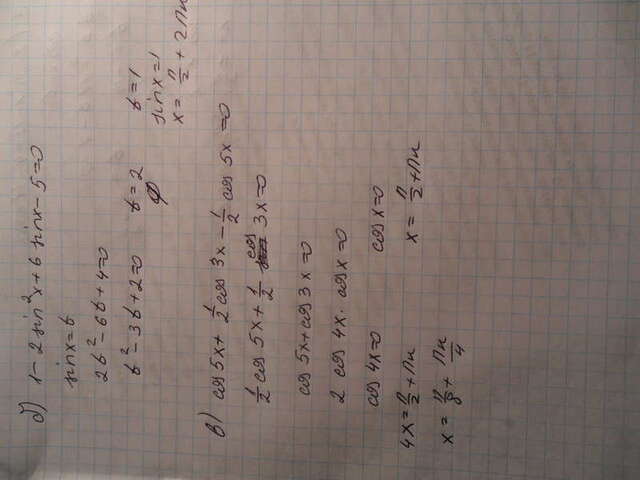 б) 1 - 2 sin²x + 6 sinx - 5 = 0
sinx = b
2b² - 6b + 4 = 0
b² - 3b + 2 = 0
b = 2 b = 1
∅ sinx = 1
x = π/2 + 2πn
в) cos 5x + 1/2 cos 3x - 1/2 cos 5x = 0
1/2 cos 5x + 1/2 cos 3x = 0
cos 5x + cos 3x = 0
2 cos 4x · cos x = 0
cos 4x = 0 cos x = 0
4x = π/2 + πn x = π/2 + πn
x = π/8 + πn/4